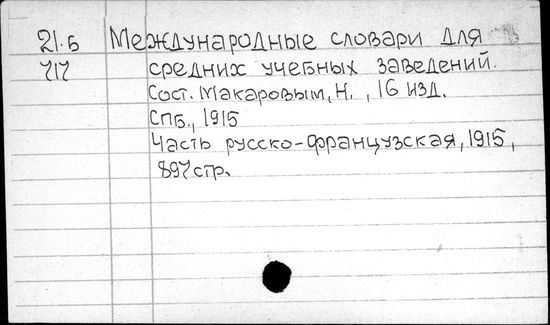 21.Б Международные словари для
717 средних учебных заведений.
Сост. Макаровым, Н. , 16 изд.
СПб., 1915
Часть русско-французская, 1915,
897 стр.